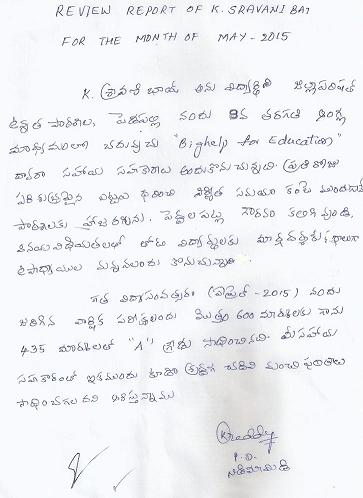 REVIEW REPORT OF K. SRAVANI BAI
FOR THE MONTH OF MAY - 2015
K. శ్రావణి బాయ్ అను విద్యార్థిని జిల్లాపరిషత్
ఉన్నత పాఠశాల, నందు 9వ తరగతి ఆంగ్ల
మాధ్యమంలో చదువుచు "Bighelp for Education"
ద్వారా సహాయ సహకారాలు అందుకొనుచున్నది. ప్రతిరోజు
పరిశుభ్రమైన దుస్తులు ధరించి నిర్ణీత సమయం కంటే ముందుగానే
పాఠశాలకు హాజరగును. పెద్దలపట్ల గౌరవం కలిగి వుండి,
వినయవిధేయతలలో తోటి విద్యార్థులకు మార్గదర్శకురాలుగా
ఉపాధ్యాయుల మన్ననలందు కొనుచున్నది.
గత విద్యాసంవత్సరం (ఏప్రిల్ - 2015) నందు
జరిగిన వార్షిక పరీక్షలందు మొత్తం 600 మార్కులకు గాను
435 మార్కులతో "A" గ్రేడు సాధించినది. మీ సహాయ
సహకారంతో ఇకముందు కూడా చదివి మంచి ఫలితాలు
సాధించగలదని ఆశిస్తున్నాము
P.D.